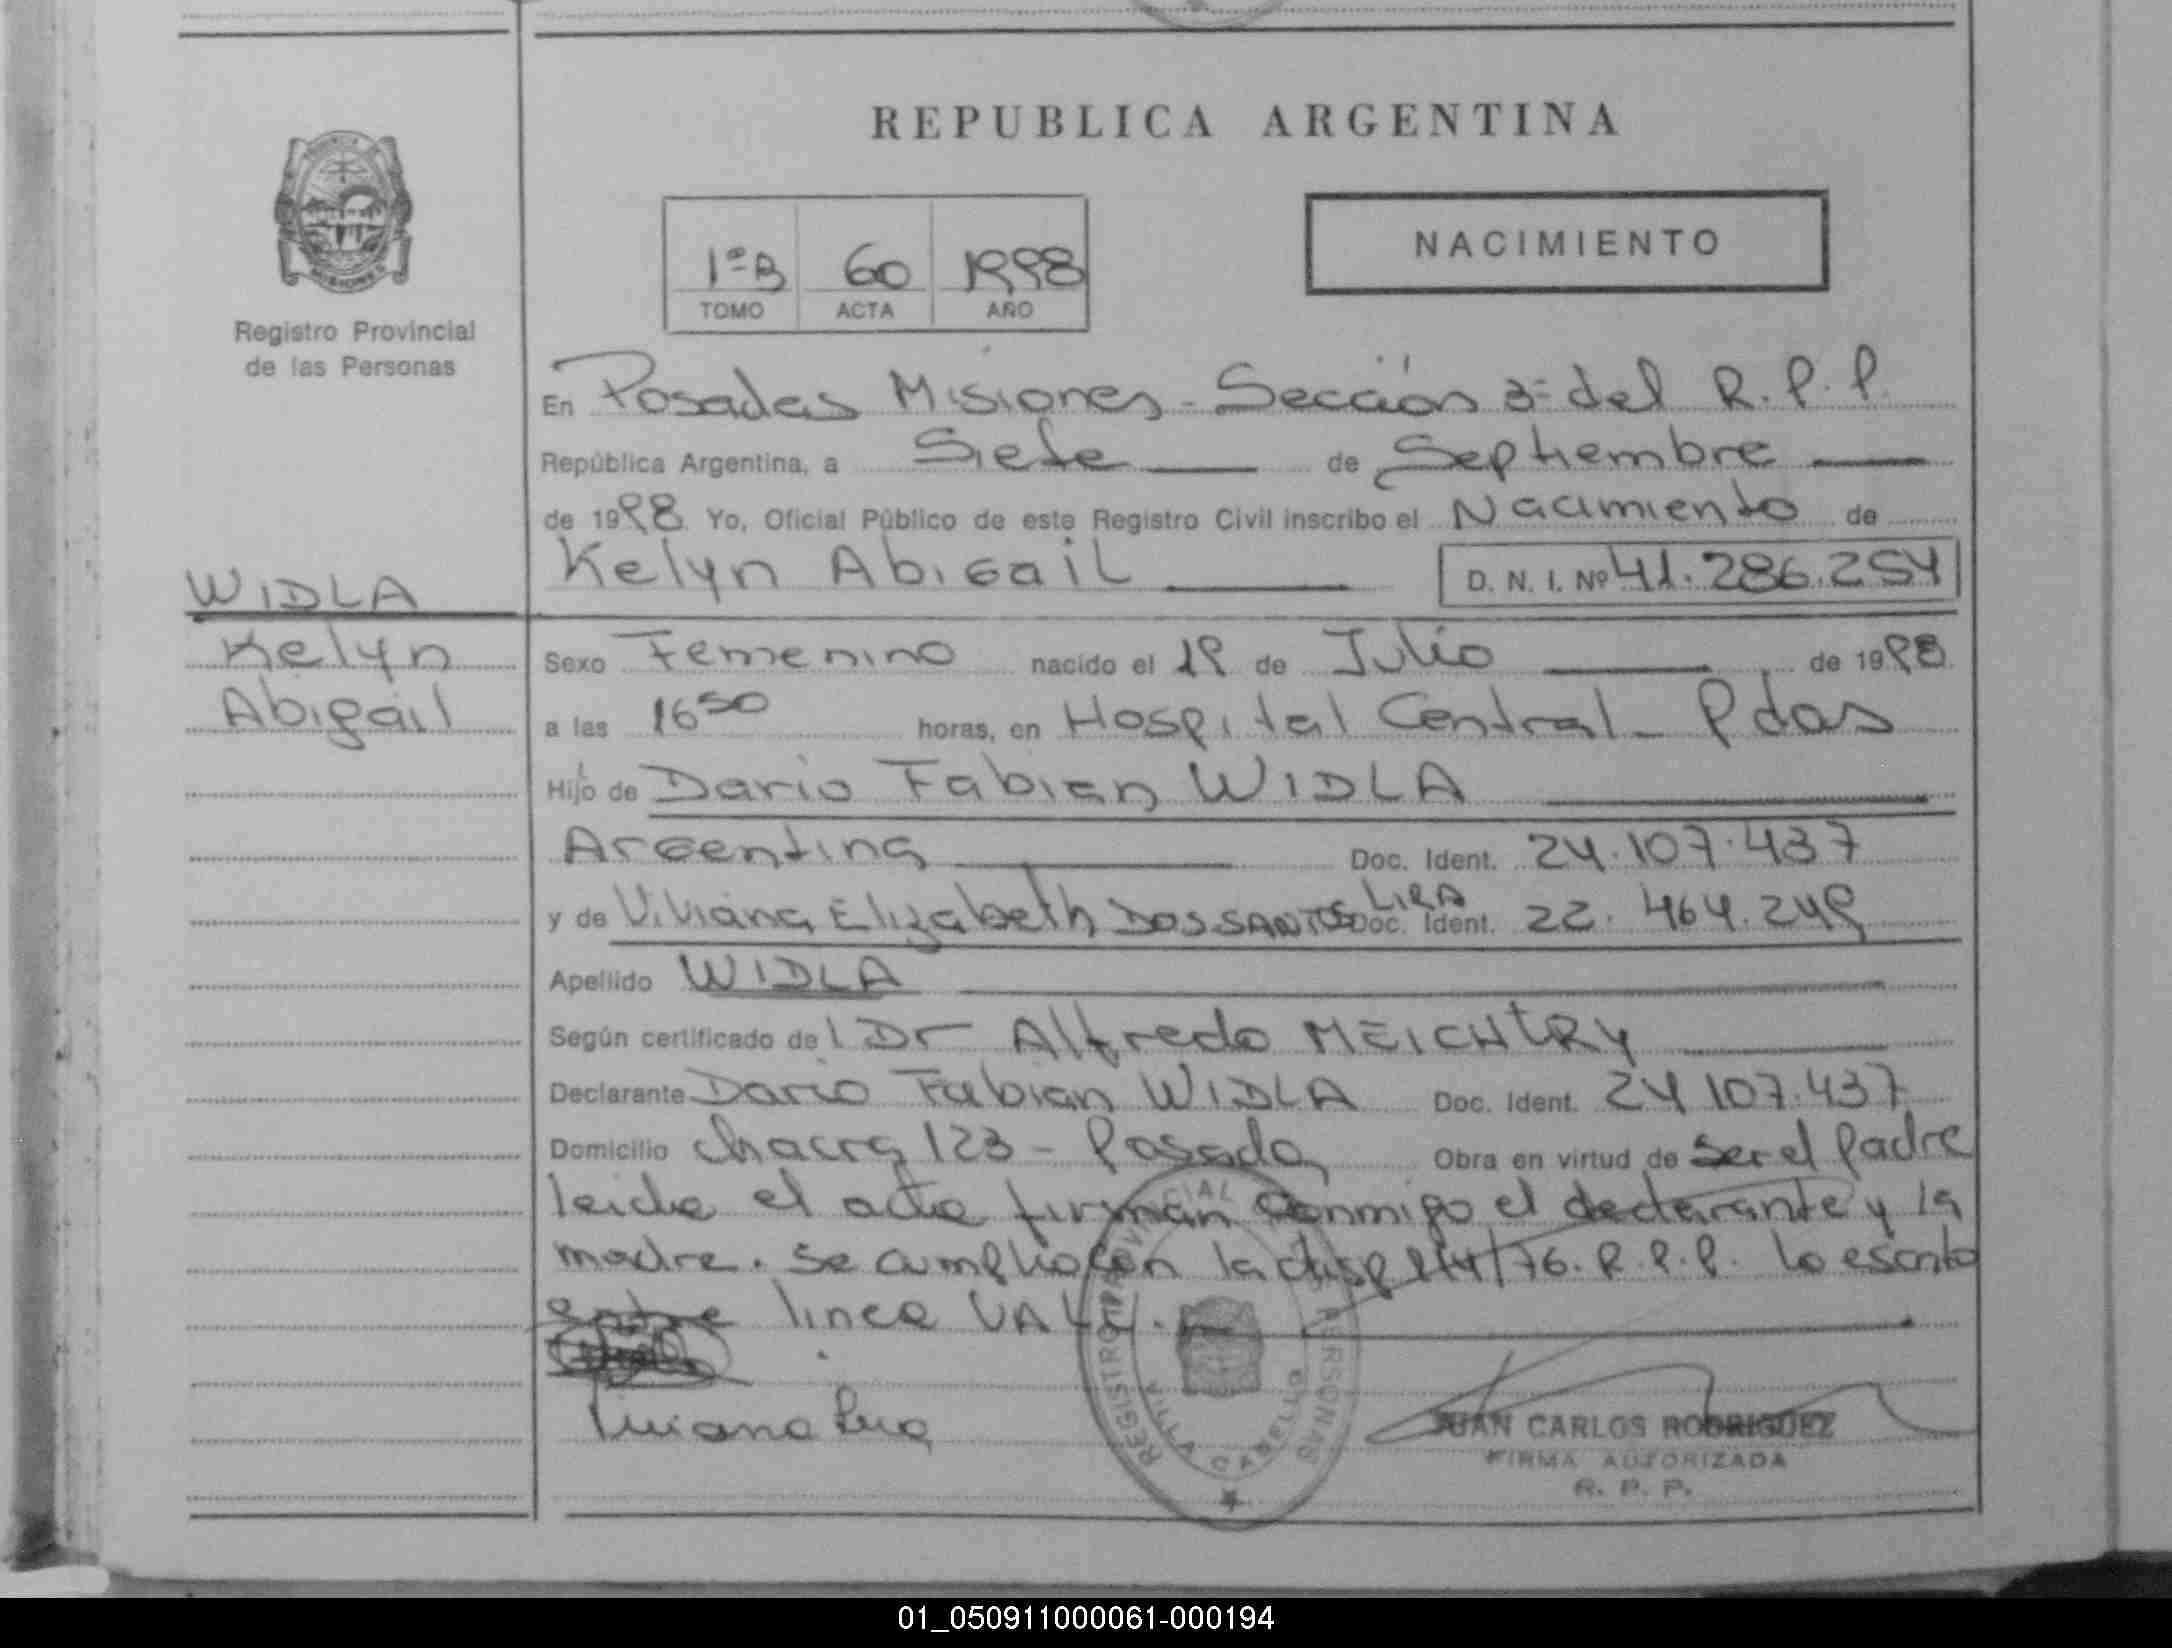 REPUBLICA ARGENTINA
Registro Provincial
de las Personas
1ºB 60 1998
TOMO ACTA AÑO
NACIMIENTO
En Posadas Misiones - Sección 3ª del R.P.P.
República Argentina, a Siete de Septiembre
de 1998 Yo, Oficial Público de este Registro Civil inscribo el Nacimiento de
Kelyn Abigail D. N. I. Nº 41.286.254
WIDLA
Kelyn
Abigail
Sexo Femenino nacido el 19 de Julio de 1998
a las 16 50 horas, en Hospital Central - Pdas
Hijo de Dario Fabian WIDLA
Argentina Doc. Ident. 24.107.437
y de Viviana Elizabeth DOS SANTOS LIRA Doc. Ident. 22.464.249
Apellido WIDLA
Según certificado del Dr Alfredo MEICHTRY
Declarante Dario Fabian WIDLA Doc. Ident. 24 107.437
Domicilio Chacra 123 - Posadas Obra en virtud de ser el padre
leida el acta firman conmigo el declarante y la
madre. Se cumplio con la disp /76. R.P.P. lo escrito
entre linea VALE.
REGISTRO PROVINCIAL PERSONAS
VILLA CABELLO
JUAN CARLOS RODRIGUEZ
FIRMA AUTORIZADA
R. P. P.
01_050911000061-000194